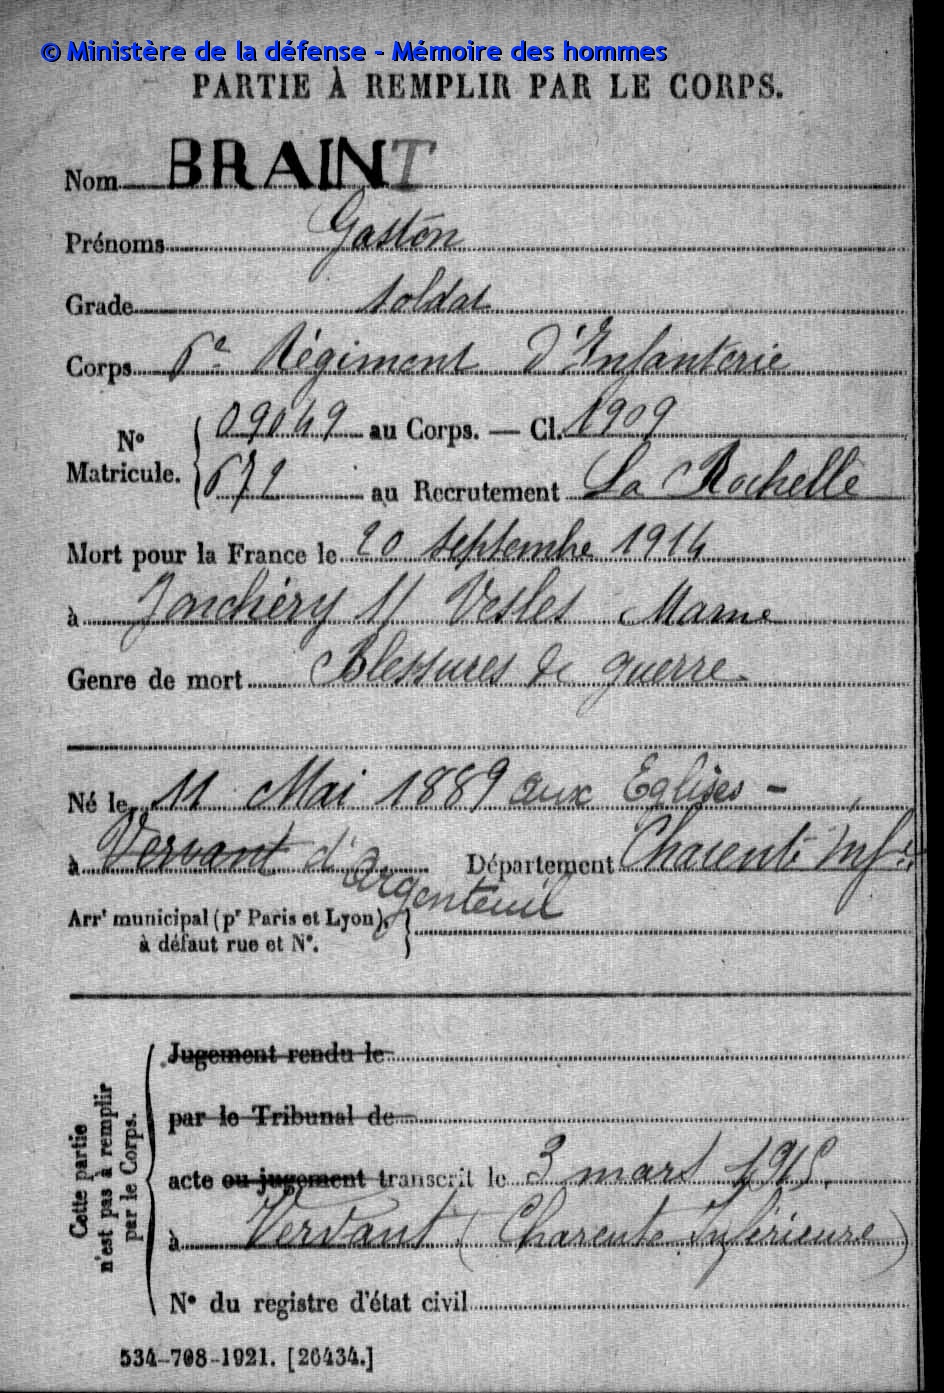 © Ministère de la défense - Mémoire des hommes
PARTIE À REMPLIR PAR LE CORPS.
Nom BRAINT
Prénoms Gaston
Grade soldat
Corps 6e Régiment d'Infanterie
No Matricule. 09049 au Corps. — Cl. 1909
672 au Recrutement La Rochelle
Mort pour la France le 20 septembre 1914
à Jonchéry s/ Vesles Marne
Genre de mort Blessures de guerre
Né le 11 Mai 1889 aux Eglises -
à Vervant d'Argenteuil Département Charente Infre
Arrt municipal (pr Paris et Lyon),
à défaut rue et No.
Cette partie n'est pas à remplir par le Corps.
Jugement rendu le
par le Tribunal de
acte ou jugement transcrit le 3 mars 1915.
à Vervant (Charente Inférieure)
No du registre d'état civil
534-708-1921. [26434.]